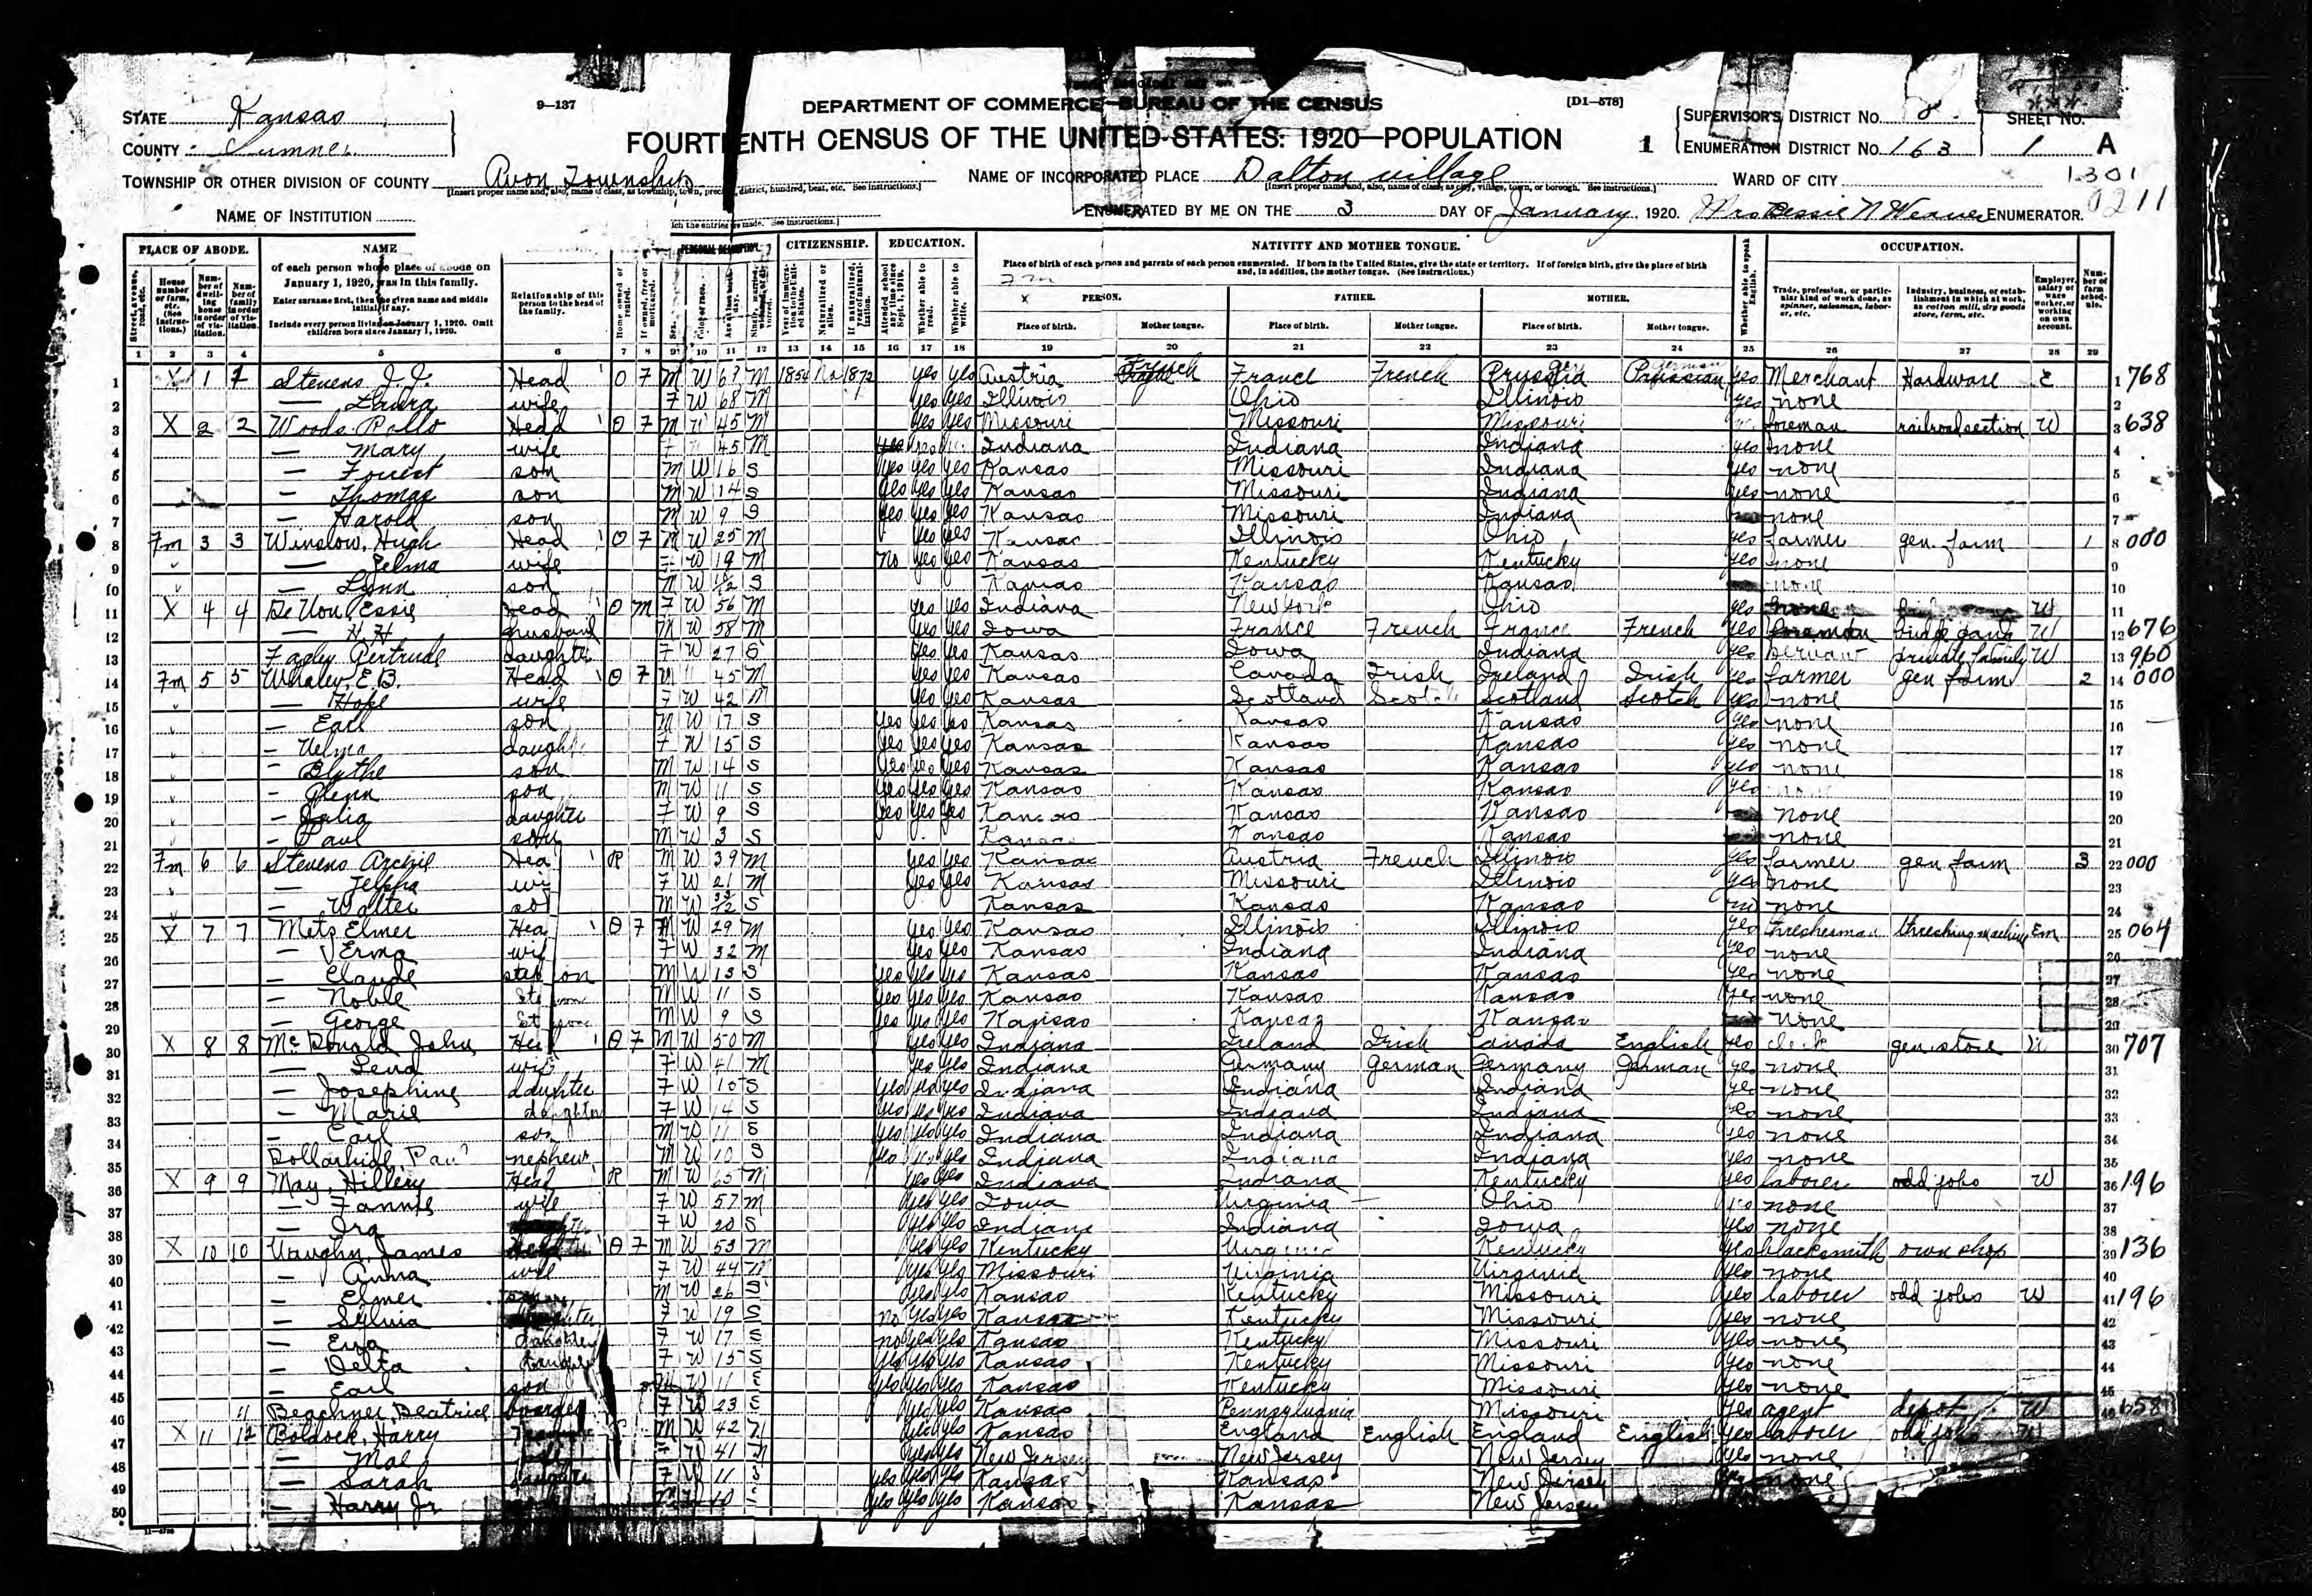 9—137
DEPARTMENT OF COMMERCE—BUREAU OF THE CENSUS
[D1—578]
STATE Kansas
SUPERVISOR'S DISTRICT No. 8
SHEET No.
FOURTEENTH CENSUS OF THE UNITED STATES: 1920—POPULATION
1
COUNTY Sumner
ENUMERATION DISTRICT No. 163
1 A
TOWNSHIP OR OTHER DIVISION OF COUNTY Avon Township
NAME OF INCORPORATED PLACE Dalton village
WARD OF CITY
1301
NAME OF INSTITUTION
ENUMERATED BY ME ON THE 3 DAY OF January, 1920. Mrs Bessie N Weaver ENUMERATOR.
0211
PLACE OF ABODE. NAME CITIZENSHIP. EDUCATION. NATIVITY AND MOTHER TONGUE. OCCUPATION.
of each person whose place of abode on January 1, 1920, was in this family.
Enter surname first, then the given name and middle initial, if any.
Include every person living on January 1, 1920. Omit children born since January 1, 1920.
Relationship of this person to the head of the family.
Place of birth of each person and parents of each person enumerated. If born in the United States, give the state or territory. If of foreign birth, give the place of birth and, in addition, the mother tongue. (See instructions.)
PERSON. FATHER. MOTHER.
Place of birth. Mother tongue. Place of birth. Mother tongue. Place of birth. Mother tongue.
1 2 3 4 5 6 7 8 9 10 11 12 13 14 15 16 17 18 19 20 21 22 23 24 25 26 27 28 29
1 X 1 1 Stevens J. J. Head O F M W M 1854 Na 1872 yes yes Austria French France French Prussia German yes Merchant Hardware E 1 768
2 — Laura wife F W 68 M yes yes Illinois Ohio Illinois yes none 2
3 X 2 2 Woods Rollo Head O F M W 45 M yes yes Missouri Missouri Missouri foreman railroad section W 3 638
4 — Mary wife F 45 M Indiana Indiana Indiana yes none 4
5 — son M W 16 S yes yes yes Kansas Missouri Indiana yes none 5
6 — Thomas son M W 14 S yes yes yes Kansas Missouri Indiana yes none 6
7 — Harold son M W 9 S yes yes yes Kansas Missouri Indiana none 7
8 Fm 3 3 Winslow, Hugh Head O F M W 25 M yes yes Kansas Illinois Ohio yes farmer gen. farm 1 8 000
9 — Zelma wife F W 19 M no yes yes Kansas Kentucky Kentucky yes none 9
10 — Lynn son M W S Kansas Kansas Kansas none 10
11 X 4 4 Essie Head O M F W 56 M yes yes Indiana New York Ohio yes W 11
12 — H. H. husband M W 58 M yes yes Iowa France French France French yes bridge gang W 12 676
13 Gertrude daughter F W 27 S yes yes Kansas Iowa Indiana yes servant private family W 13 960
14 Fm 5 5 Whaley, E. B. Head O F M 45 M yes yes Kansas Canada Irish Ireland Irish yes farmer gen farm 2 14 000
15 — Hope wife F W 42 M yes yes Kansas Scotland Scotch Scotland Scotch yes none 15
16 — Earl son M W 17 S yes yes yes Kansas Kansas Kansas yes none 16
17 — Velma daughter F W 15 S yes yes yes Kansas Kansas Kansas yes none 17
18 — Blythe son M W 14 S yes yes yes Kansas Kansas Kansas yes none 18
19 — Glenn son M W 11 S yes yes yes Kansas Kansas Kansas yes 19
20 — Julia daughter F W 9 S yes yes yes Kansas Kansas Kansas none 20
21 — Paul son M W 3 S Kansas Kansas Kansas none 21
22 Fm 6 6 Stevens Archie Head R M W 39 M yes yes Kansas Austria French Illinois yes farmer gen farm 3 22 000
23 — wife F W 21 M yes yes Kansas Missouri Illinois yes none 23
24 — Walter son M W S Kansas Kansas Kansas none 24
25 X 7 7 Metz Elmer Head O F M W 29 M yes yes Kansas Illinois Illinois yes thresherman threshing machine Em 25 064
26 — Erma wife F W 32 M yes yes Kansas Indiana Indiana yes none 26
27 — Claude step son M W 13 S yes yes yes Kansas Kansas Kansas yes none 27
28 — Noble Step son M W 11 S yes yes yes Kansas Kansas Kansas yes none 28
29 — George Step son M W 9 S yes yes yes Kansas Kansas Kansas none 29
30 X 8 8 McDonald John Head O F M W 50 M yes yes Indiana Ireland Irish Canada English yes clerk gen store W 30 707
31 — Lena wife F W 41 M yes yes Indiana Germany German Germany German yes none 31
32 — Josephine daughter F W S yes yes yes Indiana Indiana Indiana yes none 32
33 — Marie daughter F W 14 S yes yes yes Indiana Indiana Indiana yes none 33
34 — Earl son M W 11 S yes yes yes Indiana Indiana Indiana yes none 34
35 Dollarhide Paul nephew M W 10 S yes yes yes Indiana Indiana Indiana yes none 35
36 X 9 9 May, Hillery Head R M W 65 M yes yes Indiana Indiana Kentucky yes laborer odd jobs W 36 196
37 — Fannie wife F W 57 M yes yes Iowa Virginia Ohio yes none 37
38 — Ira F W 20 S yes yes Indiana Indiana Iowa yes none 38
39 X 10 10 Vaughn, James Head O F M W 53 M yes yes Kentucky Virginia Kentucky yes blacksmith own shop 39 136
40 — Anna wife F W 44 M yes yes Missouri Virginia Virginia yes none 40
41 — Elmer M W 26 S yes yes Kansas Kentucky Missouri yes laborer odd jobs W 41 196
42 — Sylvia daughter F W 19 S no yes yes Kansas Kentucky Missouri yes none 42
43 — daughter F W 17 S no yes yes Kansas Kentucky Missouri yes none 43
44 — Delta daughter F W 15 S yes yes yes Kansas Kentucky Missouri yes none 44
45 — Earl son M W 11 S yes yes yes Kansas Kentucky Missouri yes none 45
46 11 Beachner, Beatrice boarder F W 23 S yes yes Kansas Pennsylvania Missouri yes agent depot W 46 658
47 X 11 12 Harry M W 42 M yes yes Kansas England English England English yes laborer odd jobs W
48 — Mae F W 41 M yes yes New Jersey New Jersey New Jersey yes none
49 — Sarah daughter F W 11 S yes yes yes Kansas Kansas New Jersey none
50 — Harry Jr M W 10 S yes yes yes Kansas Kansas New Jersey